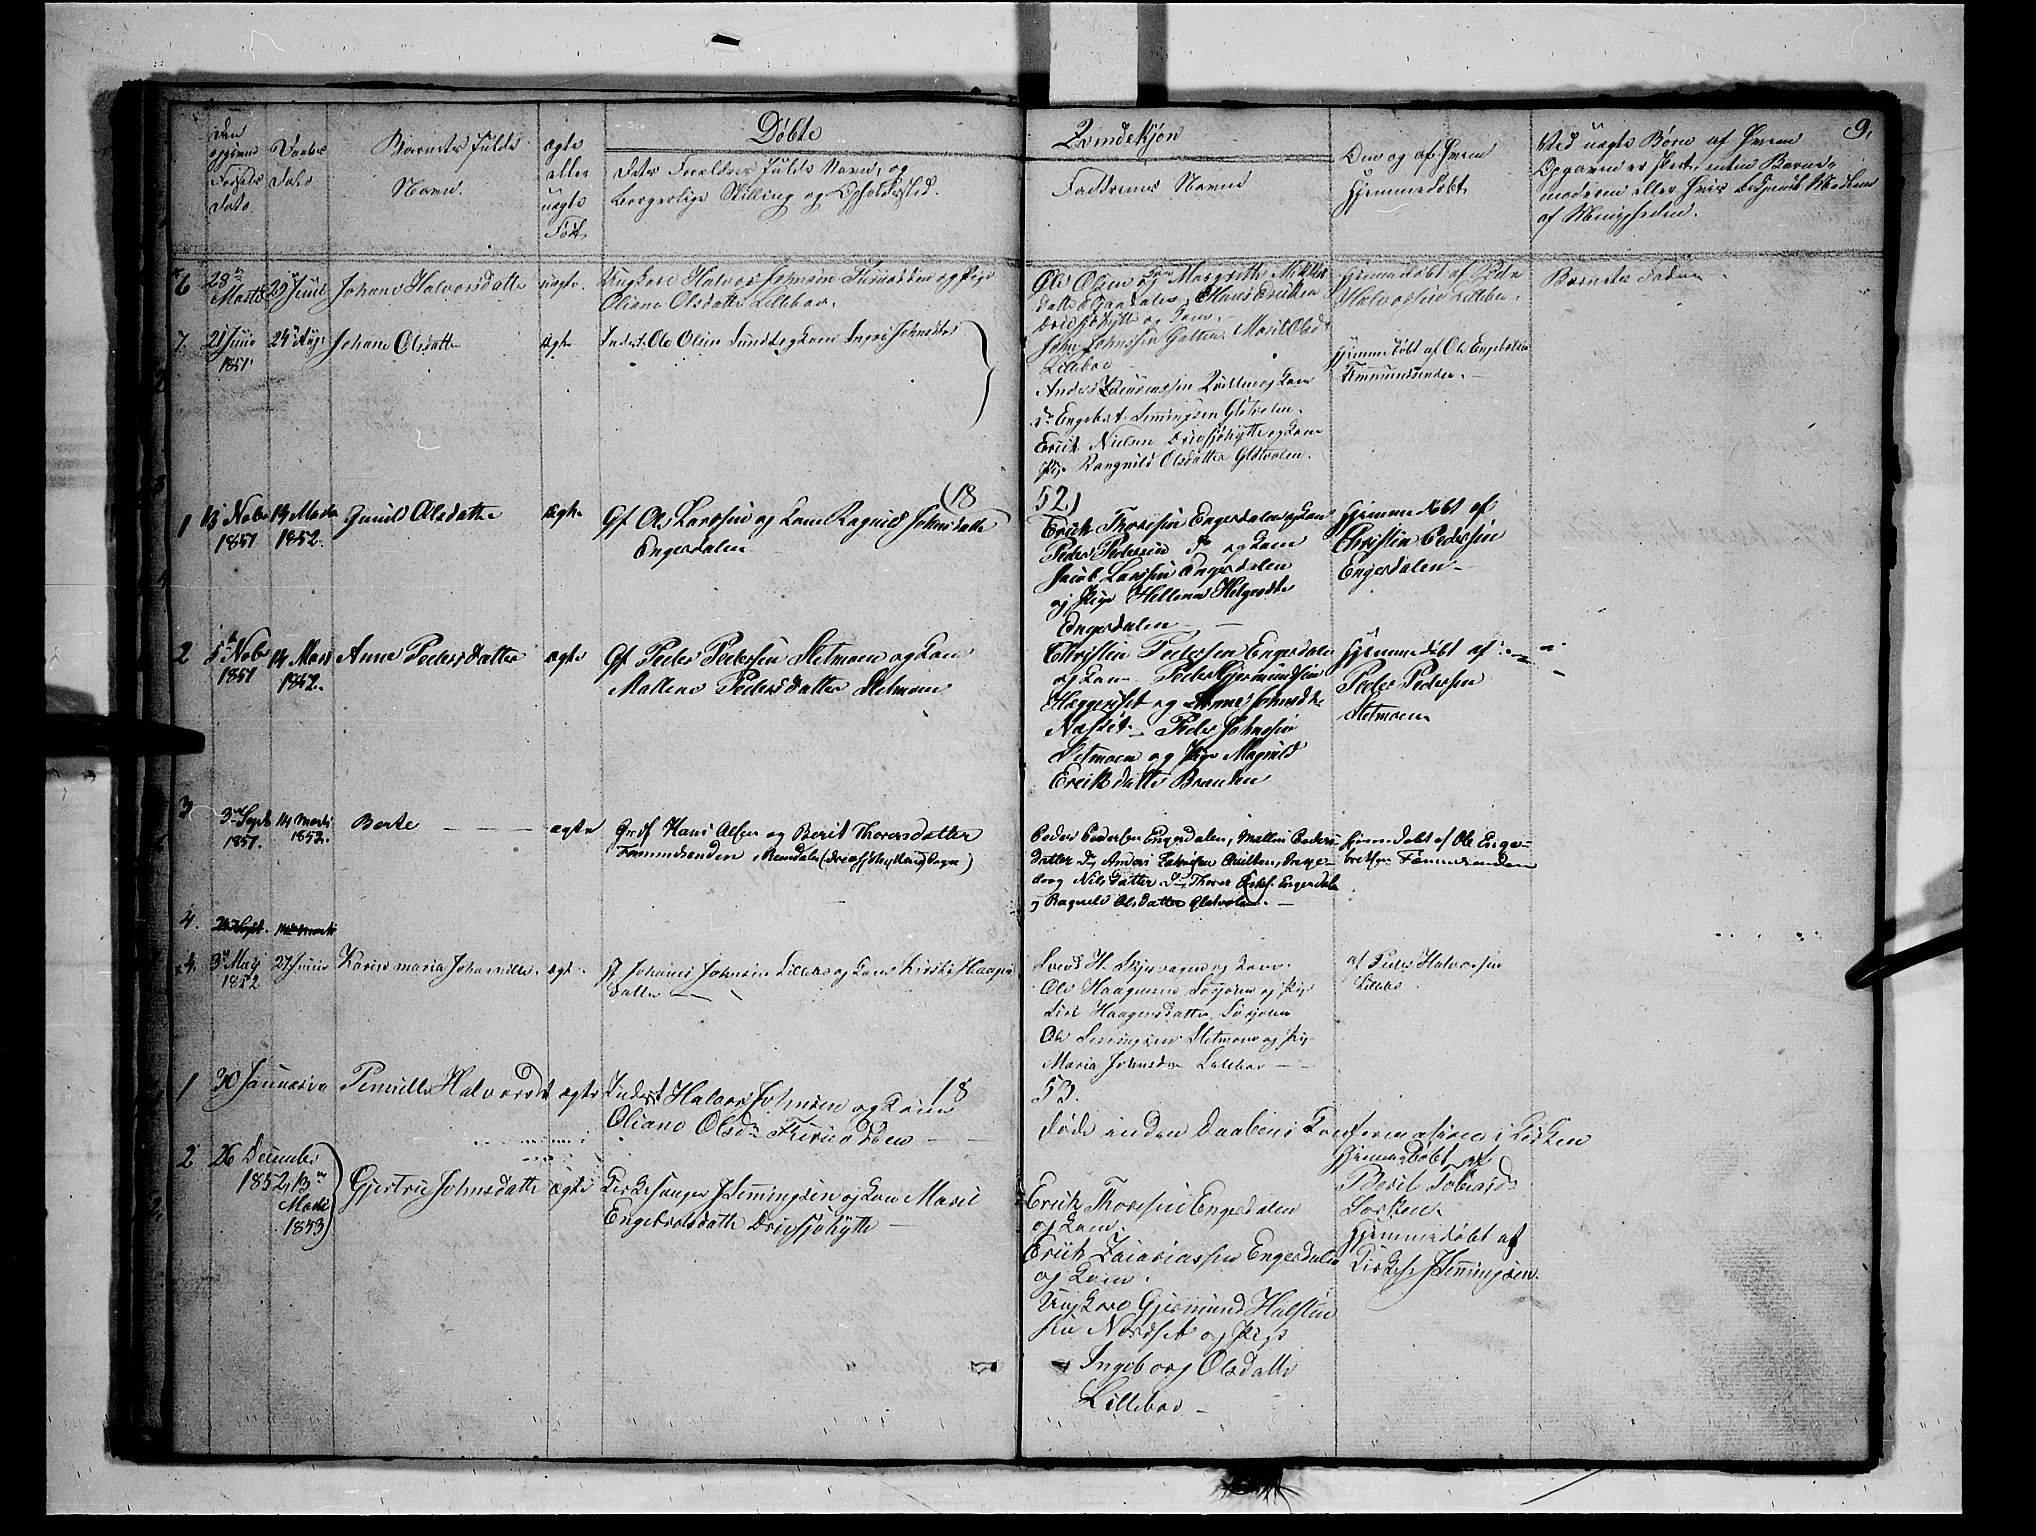 9.
Døbte
Qvindekjøn
Den opgivne Fødsels Dato
Daabens Dato
Barnets fulde Navn.
ægte eller uægte Født
dets Forældres fulde Navn, og
borgerlige Stilling og Opholdssted.
Faddernes Navne
Om og af Hvem
hjemmedøbt
Ved uægte Børn af Hvem
Opgaven er skeet, enten Barne-
moderen eller
af Menigheden.
6 28de Marts 29 Juni Johane Halvorsdatter uægte. Ungkarl Halvor Johnsen og Pige
Oliane Olsdatter Lilleboe.
Ole Olsen og Margrethe
Hans Ericksen
Drevsjøhytte og Kone.
Hjemmedøbt af Peder
Halvorsen Lillebo.
Barnets Fader
7. 21 Juni 1851. 24 Aug. Johane Olsdatter ægte Inderst Ole Olsen og Kone Johnsdtr
John Johnssen Marit Olsdtr
Lilleboe
Anders og Kone
do Engebret Semingsen Glotvolen.
Erick Nielsen Drevsjøhytte og Kone
Pige Rangnild Olsdatter Glotvolen.
Hjemmedøbt af Ole Engebretsen
Femmundsenden.
(18
52)
1 13 Nobr 1851 14 Marts 1852. Gunild Olsdatter ægte Gf Ole Larssen og Kone Ragnild Johnsdatter
Engerdalen
Erick Thoresen Engerdalen og Kone
Peder Pedersen do og Kone
Jacob Larssen Engerdalen
og Pige Hellena Helgesdtr
Engerdalen
Hjemmedøbt af
Christen Pedersen
Engerdalen
2 5te Nobr 1851 14 Marts 1852. Anne Pedersdatter ægte Gf Peder Pedersen Sletmoen og Kone
Mallene Pedersdatter Sletmoen
Christen Pedersen Engerdalen
og Kone Peder Gjermundsen
Heggeriset og Anne Johnsdtr
Peder Johnssen
Sletmoen og Pige Magnild
Ericksdatter Branden
Hjemmedøbt af
Peder Pedersen
Sletmoen
3 3die Septb 1851. 14 Marts 1852. Berte ægte Grdf Hans Olsen og Berit Thoresdatter
Femmundsenden, Rendalen (Drevsjøhyttens Sogn)
Peder Pedersen Engerdalen, Mallene Peders-
datter do, Anders Qvilten, Inge-
borg Nilsdatter do, Thore Engerdalen
og Ragnild Olsdatter Glotvolen.
Hjemmedøbt af Ole Enge-
bretsen Femmundsenden
4.
4. 3die May 1852 27 Juni Karen Maria Johannesdtr. ægte Gf Johannes Johnsen Lillebo og Kone Kirstie Haagens-
datter
Svend H. og Kone.
Ole Haagensen Sorjoren og Pige
Lise Haagensdatter Sorjoren
Ole Semingsen Sletmoen og Pige
Maria Johnsdtr Lillebo
af Peder Halvorsen
Lillebo
18
53.
1 30 Januari Pernille Halvorsdtr ægte Inderst Halvor Johnsen og Kone
Oliane Olsdtr
døde inden Daabens Confirmation i Kirken
Hjemmedøbt af
Berit
Sorken.
2 26 December 1852, 13de Marts 1853 Gjertrue Johnsdatter ægte Kirkesanger J Semingsen og Kone Marit
Engebretsdatter Drevsjøhytte
Erick Thoresen Engerdalen
og Kone.
Erick Zacariassen Engerdalen
og Kone.
Ungkarl Gjermund Halsten-
sen Nordset og Pige
Ingeborg Olsdatter
Lillebo
Hjemmedøbt af
Kirkes. J Semingsen.